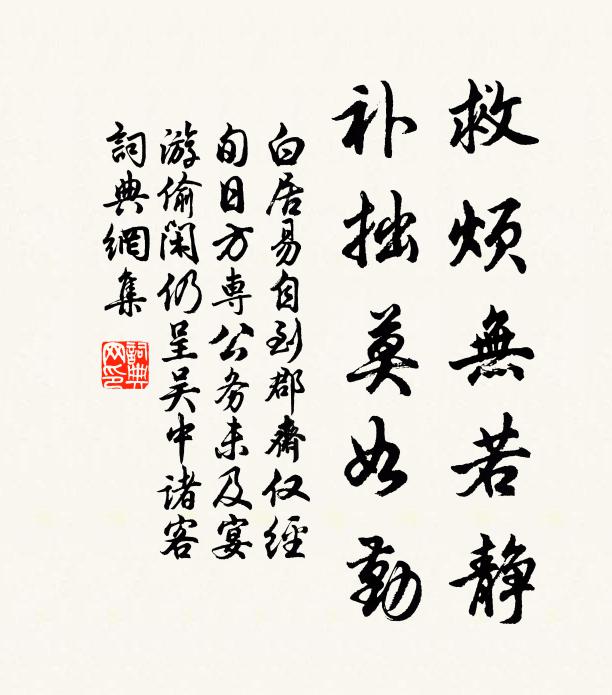 救烦無若静
补拙莫如勤
白居易自到郡齋仅經
旬日方専公务未及宴
游偷閑仍呈吴中诸客
詞典網集
詞典网印